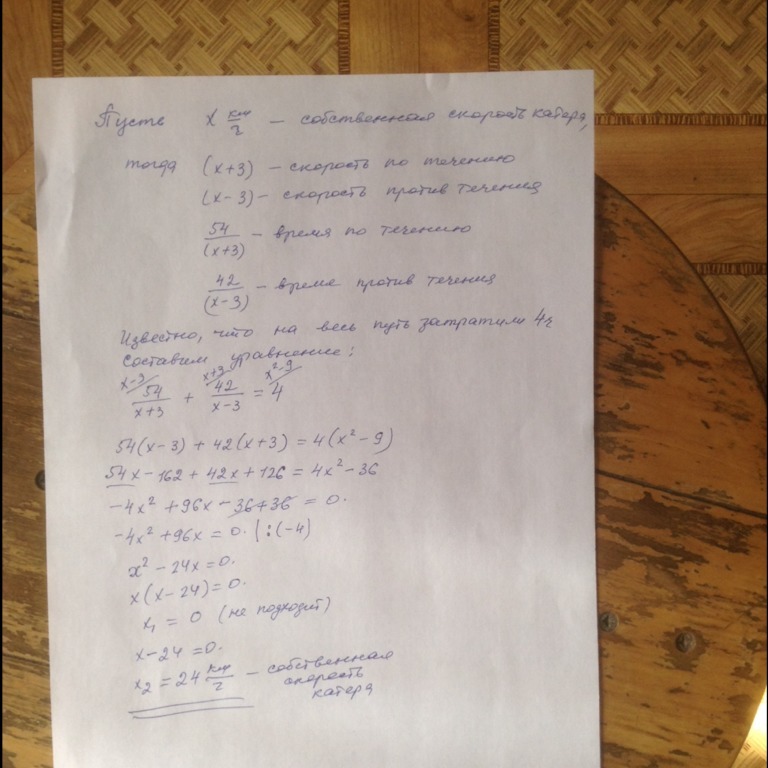 Пусть x км/г — собственная скорость катера,
тогда (x+3) – скорость по течению
(x-3) – скорость против течения
54/(x+3) – время по течению
42/(x-3) – время против течения
Известно, что на весь путь затратили 4ч
Составим уравнение:
x-3 x+3 x²-9
54/(x+3) + 42/(x-3) = 4
54(x-3) + 42(x+3) = 4(x²-9)
54x-162 + 42x+126 = 4x²-36
-4x² +96x -36+36 = 0.
-4x² +96x = 0. |:(-4)
x² - 24x = 0.
x(x-24) = 0.
x₁ = 0 (не подходит)
x-24 = 0.
x₂ = 24 км/г – собственная
скорость
катера